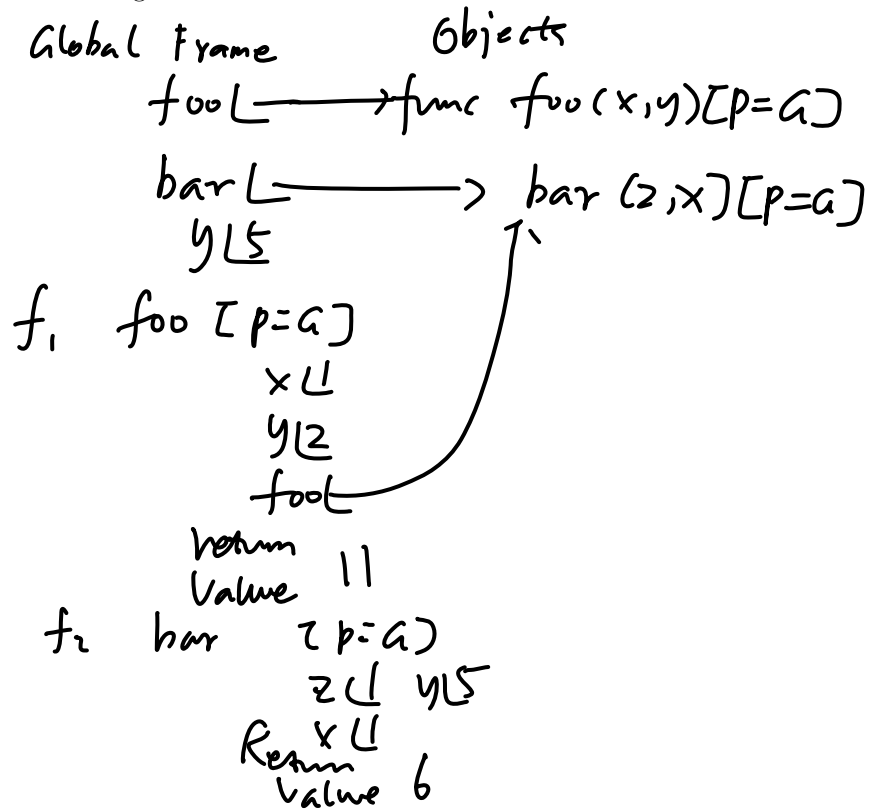 Global Frame Objects
foo func foo(x,y)[p=G]
bar bar (z,x)[p=G]
y 5
f1 foo [p=G]
x 1
y 2
foo
return
Value 11
f2 bar [p=G]
z 1 y 5
x 1
Return
Value 6